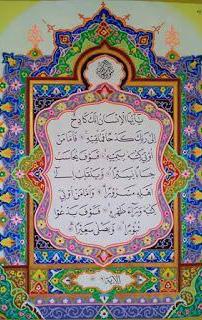 يَٰٓأَيُّهَا ٱلْإِنسَٰنُ إِنَّكَ كَادِحٌ
إِلَىٰ رَبِّكَ كَدْحًا فَمُلَٰقِيهِ ۝ فَأَمَّا مَنْ
أُوتِيَ كِتَٰبَهُۥ بِيَمِينِهِۦ ۝ فَسَوْفَ يُحَاسَبُ
حِسَابًا يَسِيرًا ۝ وَيَنقَلِبُ إِلَىٰٓ
أَهْلِهِۦ مَسْرُورًا ۝ وَأَمَّا مَنْ أُوتِيَ
كِتَٰبَهُۥ وَرَآءَ ظَهْرِهِۦ ۝ فَسَوْفَ يَدْعُوا۟
ثُبُورًا ۝ وَيَصْلَىٰ سَعِيرًا ۝
الآية